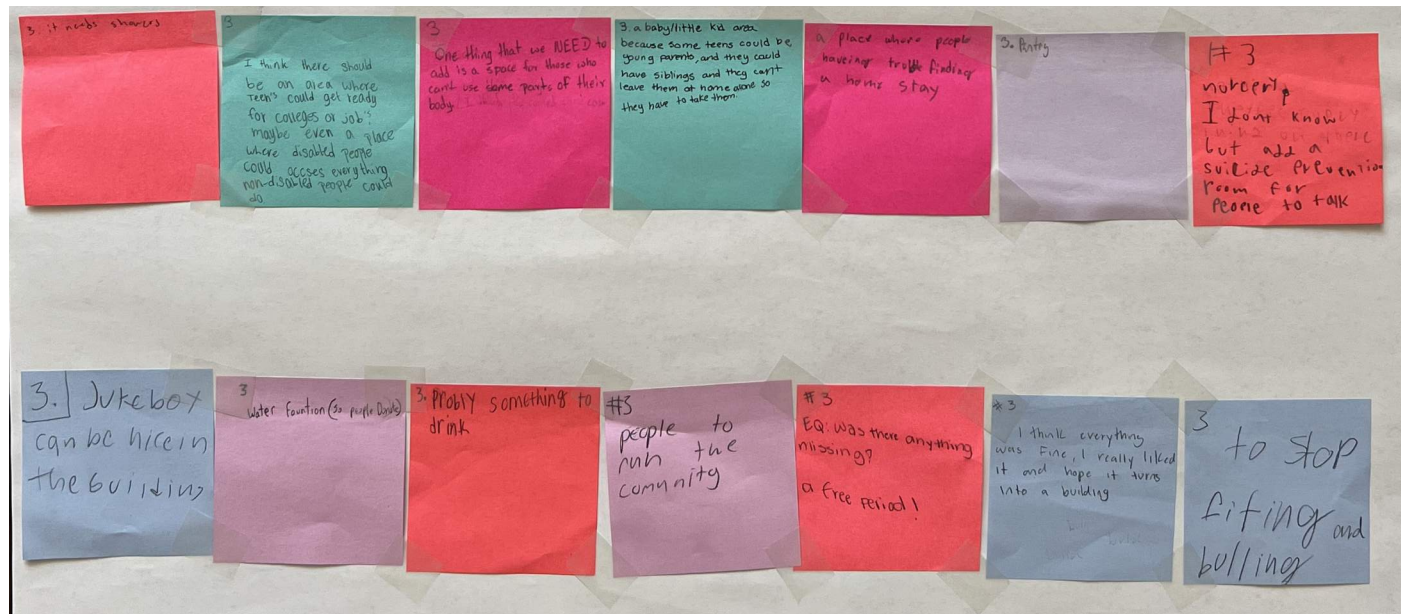 3. it needs showers
3
I think there should
be an area where
Teen's could get ready
for colleges or job?
maybe even a place
where disabled people
could accses everything
non-disabled people could
do
3
One thing that we NEED to
add is a space for those who
can't use some parts of their
body.
3. a baby/little kid area
because some teens could be
young parents, and they could
have siblings and they can't
leave them at home alone so
they have to take them.
a place where people
haveing truble finding
a home stay
3. Pantry
# 3
nurcery,
I dont know
but add a
suicide prevention
room for
people to talk
3. Jukebox
can be nice in
the building
3
Water Fountion (so people
3. Probly something to
drink
#3
people to
run the
comunity
#3
EQ: Was there anything
missing?
a free period!
#3
I think everything
was fine, I really liked
it and hope it turns
into a building
3
to stop
fifing and
bulling